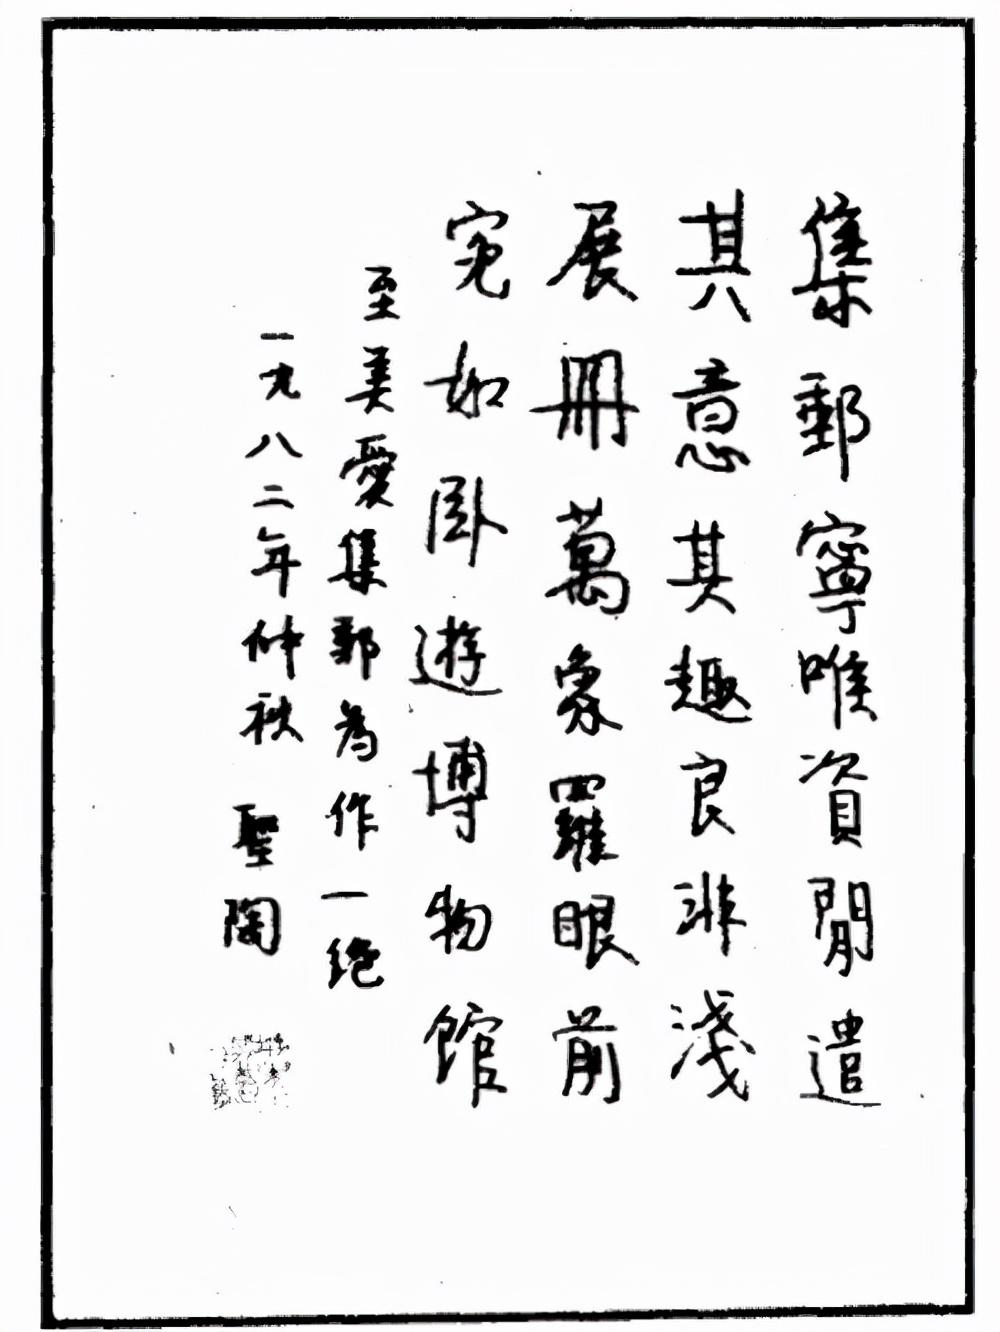 集郵寧唯資閒遣
其意其趣良非淺
展冊萬象羅眼前
宛如卧遊博物館
至美愛集郵為作一絕
一九八二年仲秋 聖陶